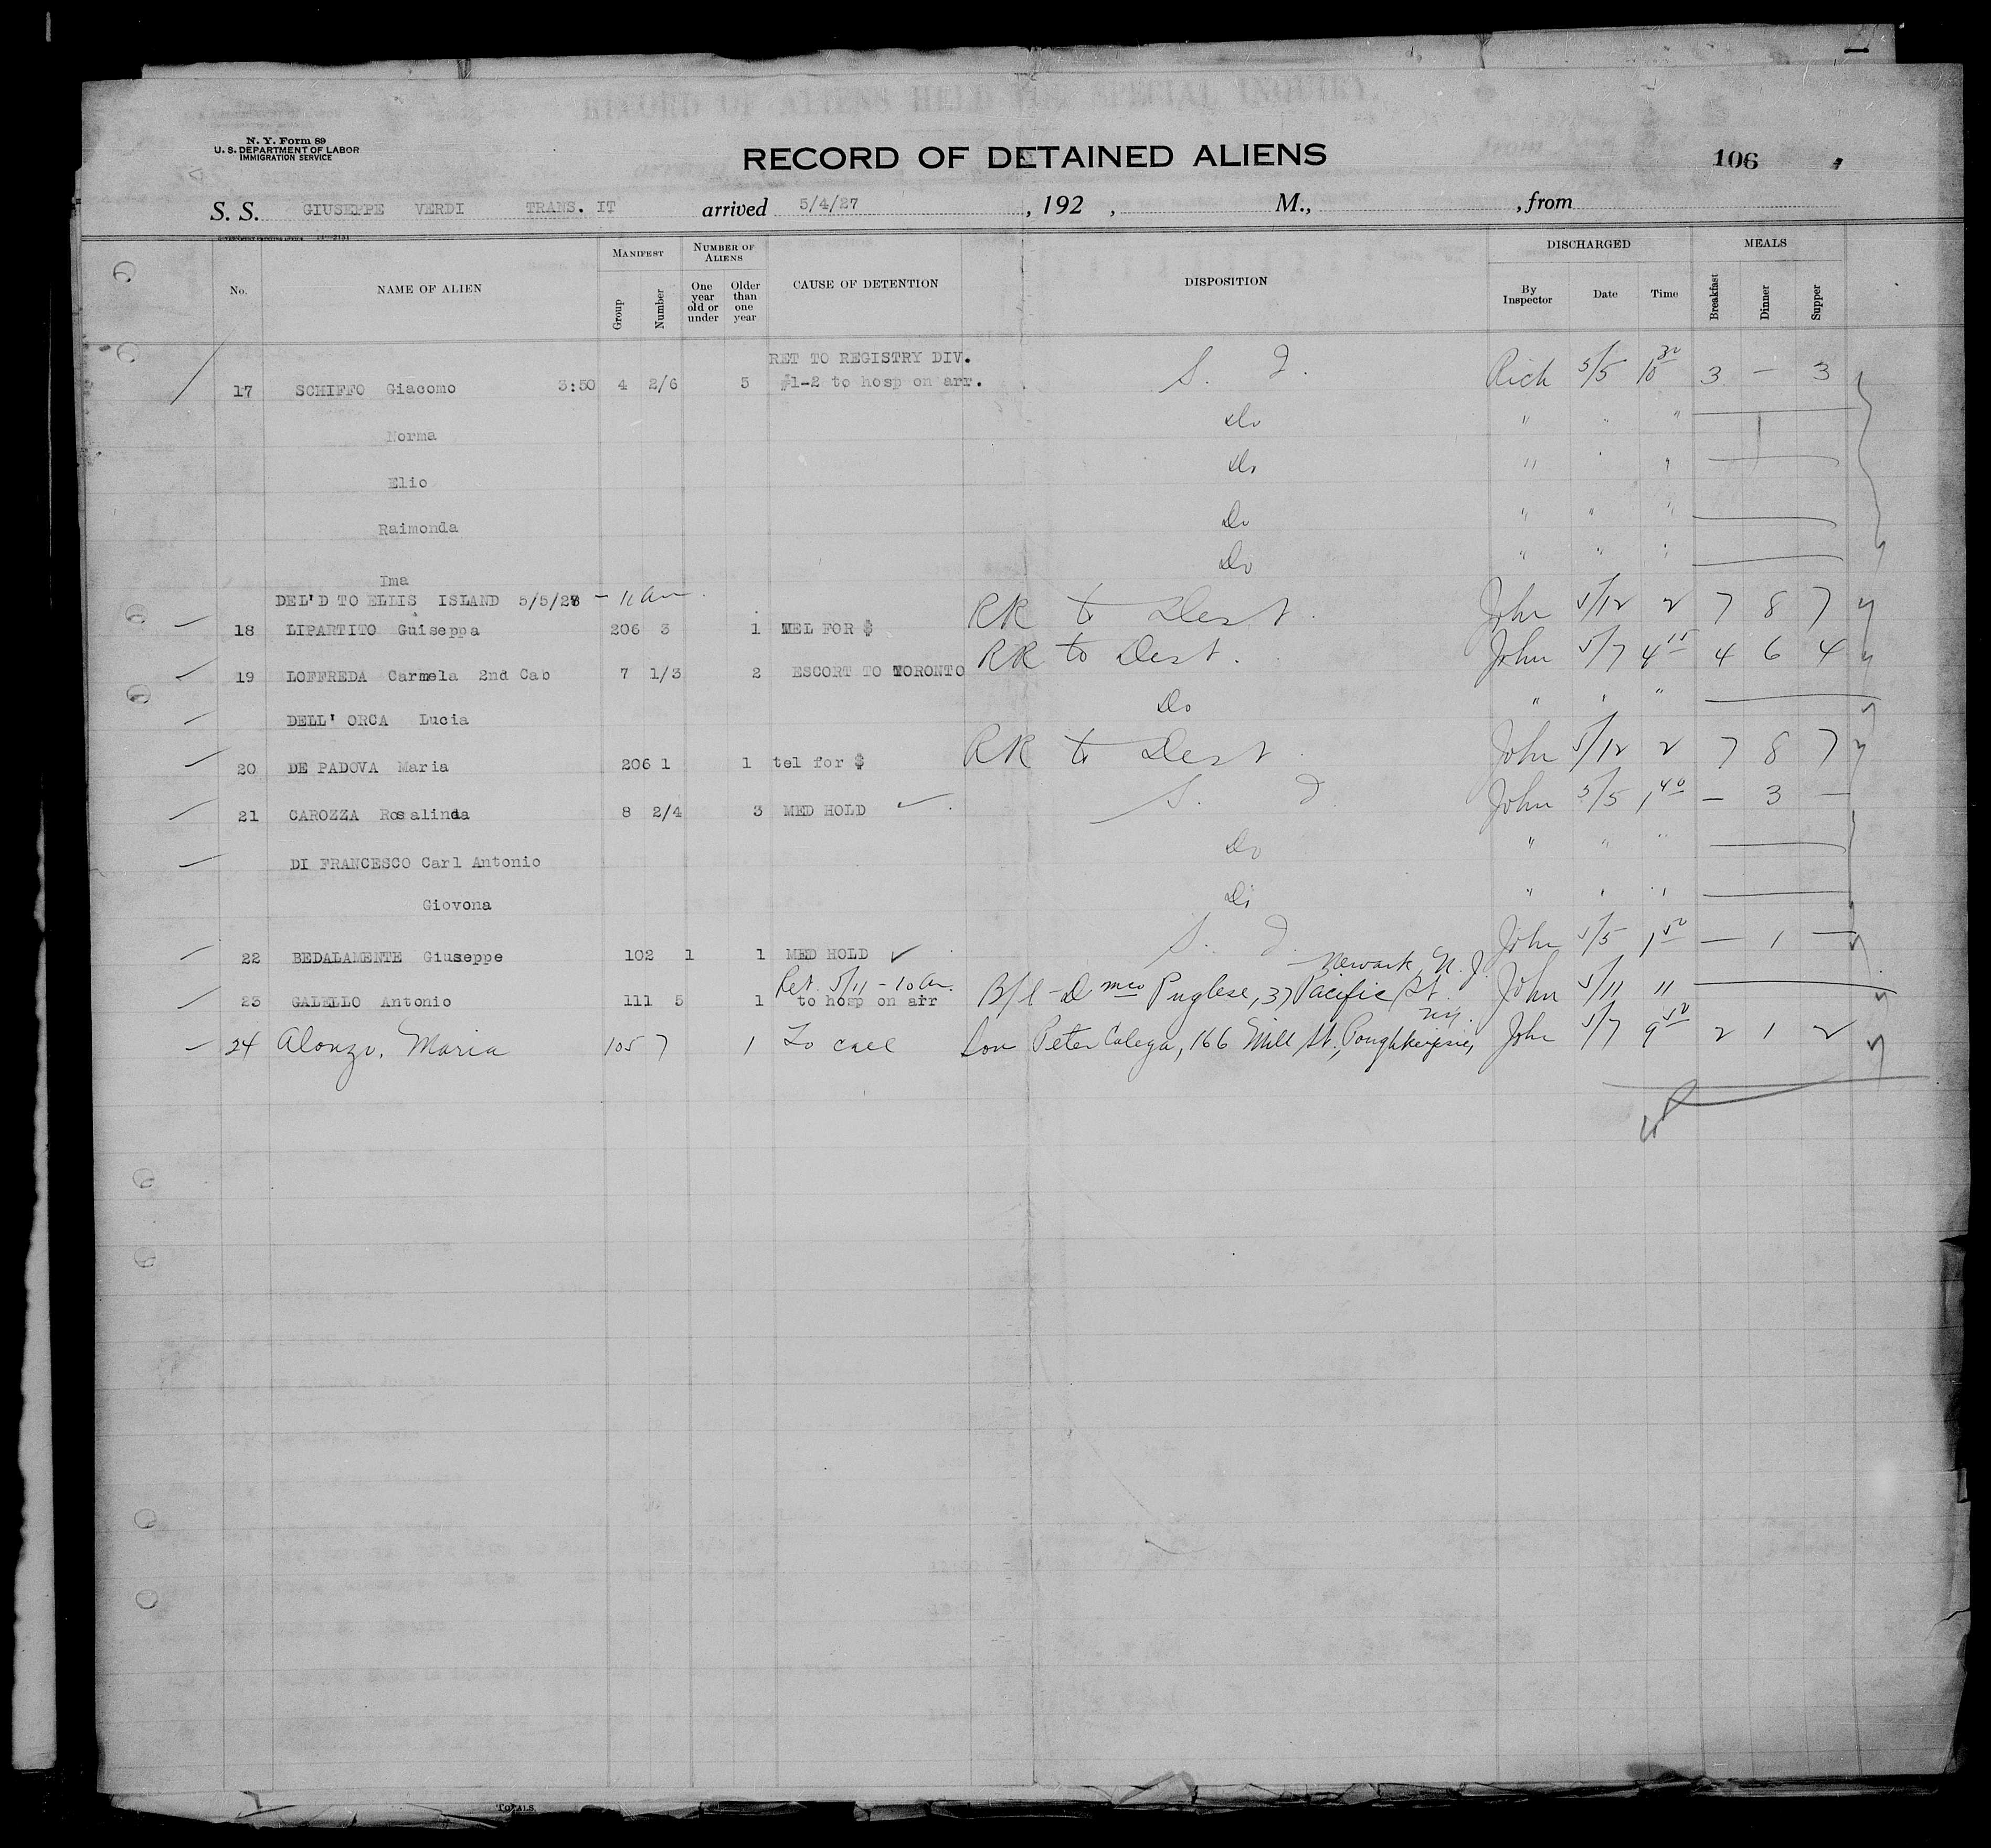 RECORD OF ALIENS HELD FOR SPECIAL INQUIRY.
N. Y. Form 89
U. S. DEPARTMENT OF LABOR
IMMIGRATION SERVICE
RECORD OF DETAINED ALIENS
106
S. S. GIUSEPPE VERDI TRANS. IT arrived 5/4/27 , 192 , M., , from
No. NAME OF ALIEN MANIFEST Group Number NUMBER OF ALIENS One year old or under Older than one year CAUSE OF DETENTION DISPOSITION DISCHARGED By Inspector Date Time MEALS Breakfast Dinner Supper
RET TO REGISTRY DIV.
17 SCHIFFO Giacomo 3:50 4 2/6 5 #1-2 to hosp on arr. S. I. Rich 5/5 10 30 3 — 3
Norma Do " " "
Elio Do " " "
Raimonda Do " " "
Ima Do " " "
DEL'D TO ELLIS ISLAND 5/5/27 - 11 am
18 LIPARTITO Guiseppa 206 3 1 TEL FOR $ RR to Dest. John 5/12 2 7 8 7
19 LOFFREDA Carmela 2nd Cab 7 1/3 2 ESCORT TO TORONTO RR to Dest. John 5/7 4 15 4 6 4
DELL' ORCA Lucia Do " " "
20 DE PADOVA Maria 206 1 1 tel for $ RR to Dest John 5/12 2 7 8 7
21 CAROZZA Rosalinda 8 2/4 3 MED HOLD ✓ S. I. John 5/5 1 40 — 3 —
DI FRANCESCO Carl Antonio Do " " "
Giovona Do " " "
22 BEDALAMENTE Giuseppe 102 1 1 MED HOLD ✓ S. I. John 5/5 1 50 — 1 —
Ret. 5/11 - 10 am. Newark, N. J.
23 GALELLO Antonio 111 5 1 to hosp on arr B/l - Dmco Puglese, 37 Pacific St. John 5/11 11
24 Alonzo, Maria 105 7 1 To call Son Peter Calega, 166 Mill St., Poughkeepsie, NY. John 5/7 9 50 2 1 2
TOTALS